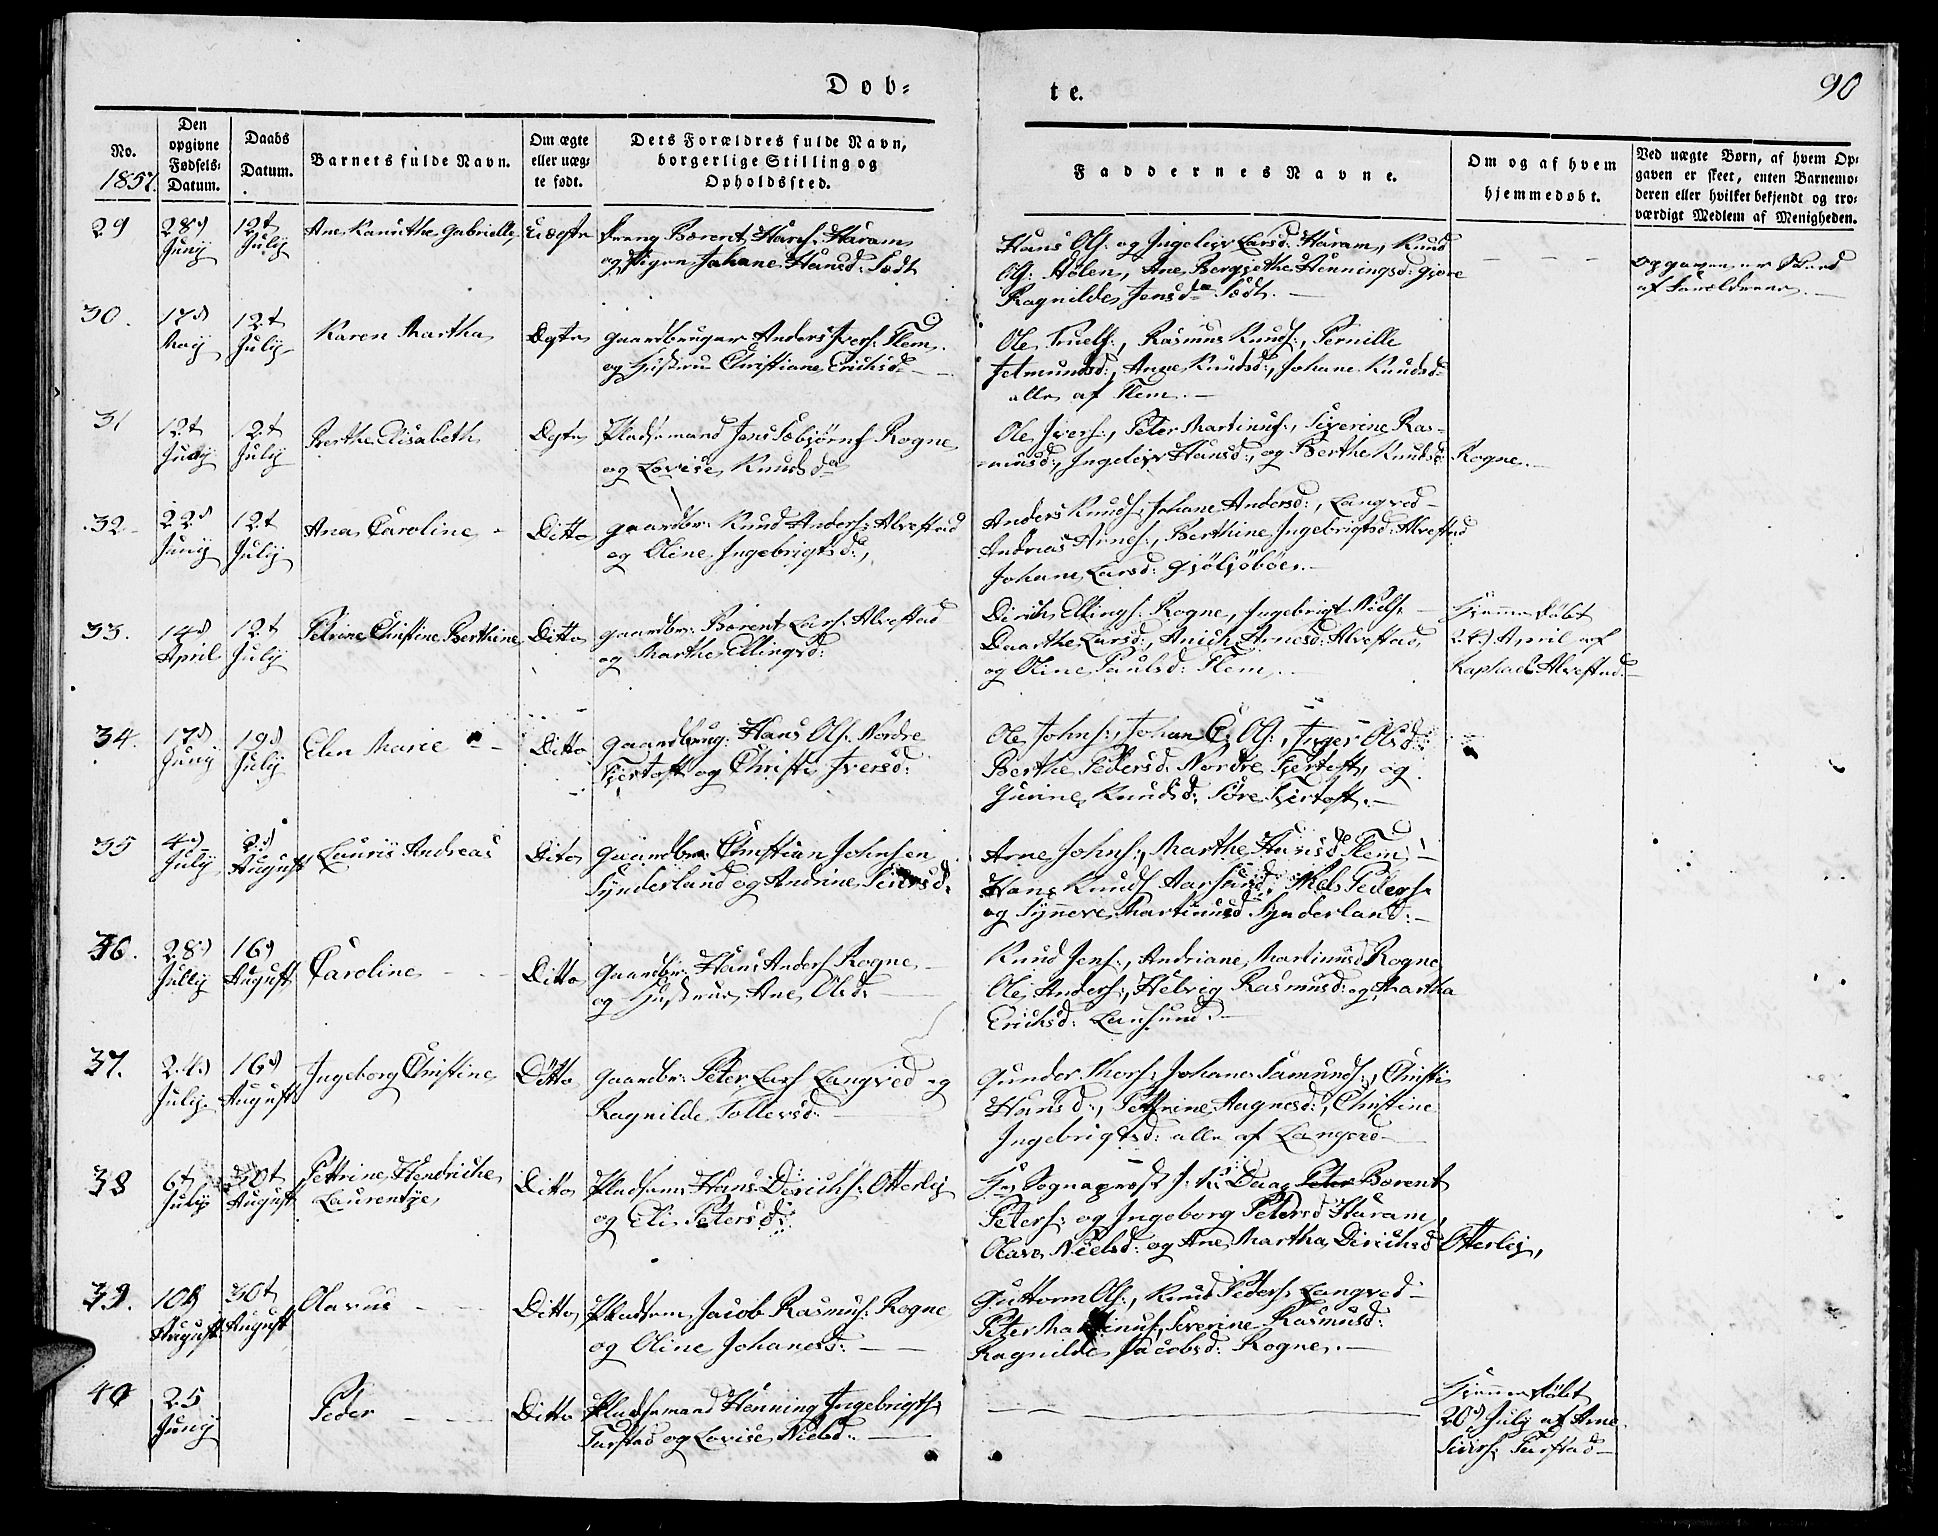 Dob-
te.
90
No.
1857.
Den
opgivne
Fødsels-
Datum.
Daabs
Datum.
Barnets fulde Navn.
Om ægte
eller uæg-
te født.
Dets Forældres fulde Navn,
borgerlige Stilling og
Opholdssted.
Faddernes Navne.
Om og af hvem
hjemmedøbt.
Ved uægte Børn, af hvem Op-
gaven er skeet, enten Barnemo-
deren eller hvilket bekjendt og tro-
værdigt Medlem af Menigheden.
29
28d
Junij
12t
Julij
Ane Kanuthe Gabrielle
Uægte
Dreng Bærent Hansf: Haram
og Pigen Johane Hansd: Sæth
Hans Ols: og Ingelev Larsd: Haram, Knud
Ols: Hølen, Ane Bergjethe Henningsd:
Ragnilde Jensdr Sæth.
Opgaven er skeed
af Forældrene.
30.
17d
Maij
12t
Julij
Karen Martha
Ægte
Gaardbruger Anders Ivers: Flem
og Hustrue Christiane Erichsd:
Ole Truels:, Rasmus Knuds:, Pernille
Jetmundsd:, Anne Knudsd:, Johane Knudsd:
alle af Flem.
31
12t
Junij
12t
Julij
Berthe Elisabeth
Ægte
Pladsemand Jens Sæbjørns Rogne
og Lovise Knudsdr
Ole Ivers:, Peter Martinus:, Siverine Ras-
musd:, Ingelev Hansd:, og Berthe Knudsd: Rogne.
32
22d
Junij
12t
Julij
Ana Caroline
Ditto
Gaardbr: Knud Anders: Alvestad
og Oline Ingebrigtsd:,
Anders Knuds: Johane Andersd:, Langved
Andreas Arnes:, Berthine Ingebrigtsd: Alvestad
Johane Larsd:
33.
14d
April
12t
Julij
Petrine Christine Berthine
Ditto
Gaardbr: Bærent Lars: Alvestad
og Marthe Ellingsd:
Dirich Ellings: Rogne, Ingebrigt Niels:
Daarthe Larsd:, Anich Arnesd: Alvestad,
og Oline Paulsd: Flem.
Hjemmedøbt
24d April af
Raphael Alvestad.
34.
17d
Junij
19d
Julij
Elen Marie
Ditto
Gaardbrug: Hans Ols: Nordre
Fjertoft og Christi Iversd:
Ole Johns:, Johan C. Ols:, Inger Olsd:
Berthe Pedersd: Nordre Fjertoft, og
Gurine Knudsd: Søre Fjertoft.
35
4d
Julij
2d
August
Lauris Andreas
Ditto
Gaardbr: Christian Johnsen
Synderland og Andrine Siversd:
Arne Johns:, Marthe Hansd: Flem,
Hans Knuds Aarsund, Niels Peders:
og Synneve Martinusd Synderland:
36.
28d
Julij
16d
August
Caroline
Ditto
Gaardbr: Hans Anders Rogne
og Hustrue Ane Olsd:
Knud Jens:, Andriane Martinusd Rogne
Ole Anders:, Helvig Rasmusd: og Martha
Erichsd: Longsund.
37.
24d
Julij
16d
August
Ingeborg Christine
Ditto
Gaardbr: Peter Lars Langved og
Ragnilde Tollevsd:
Gunder Thors: Johane Samunds:, Christi
Hansd:, Pethrine Aagnesd:, Christine
Ingebrigtsd: alle af Langved
38
6t
Julij
30t
August
Pettrine Hendriche
Laurentze
Ditto
Pladsem: Hans Dirichs: Otterlej
og Eli Petersd:
Hr Sogneprest J. K. Daae Peter Bærent
Peters: og Ingeborg Petersd Haram,
Olave Nielsd: og Ane Martha Dirichsd Otterlej,
39.
10d
August
30t
August
Olavus
Ditto
Pladsem: Jacob Rasmus: Rogne
og Oline Johanesd:
Guttorm Ols:, Knud Peders: Langved
Peter Martinus:, Severine Rasmusd:
Ragnilde Jacobsd: Rogne.
40
25
Junij
Peder
Ditto
Pladsemand Henning Ingebrigts:
Farstad og Lovise Nielsd:
Hjemmedøbt
20d Julij af Arne
Sivers: Farstad